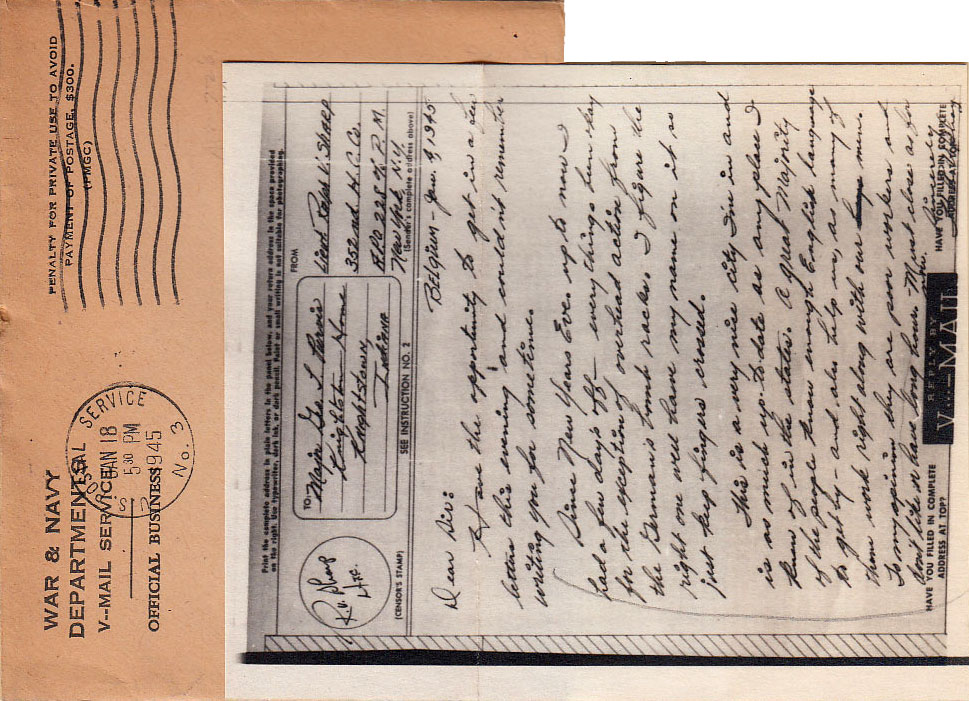 PENALTY FOR PRIVATE USE TO AVOID
PAYMENT OF POSTAGE, $300.
(PMGC)
WAR & NAVY
DEPARTMENTS
V--MAIL SERVICE
OFFICIAL BUSINESS
U.S. POSTAL SERVICE
JAN 18
5 30 PM
1945
No. 3
Print the complete address in plain letters in the panel below, and your return address in the space provided
on the right. Use typewriter, dark ink, or dark pencil. Faint or small writing is not suitable for photographing.
(CENSOR'S STAMP)
TO
Main Geo L
Knightstown Home
Knightstown
Indiana
SEE INSTRUCTION NO. 2
FROM
Lieut V. Sharp
352nd
A.P.O 228 % P. M.
New York N.Y.
(Sender's complete address above)
BELGIUM - Jan. 9, 1945
Dear Sir:
Have the opportunity to get in a few
letters this evening and couldn't remember
writing you for sometime.
Since New Years Eve. up to now I
had a few days off - every things been okay
for the exception of overhead action from
the Germans bomb racks. I figure the
right one will have my name on it so
just keep fingers crossed.
This is a very nice city I'm in and
is as much up-to-date as any place I
knew of in the states. A great majority
of the people know enough English language
to get by - and also help us, as many of
them work right along with our men.
In my opinion they are poor workers and
dont like or have long hours. Must close as for
now. Sincerely
HAVE YOU FILLED IN COMPLETE
ADDRESS AT TOP?
REPLY BY
V---MAIL
HAVE YOU FILLED IN COMPLETE
ADDRESS AT TOP?